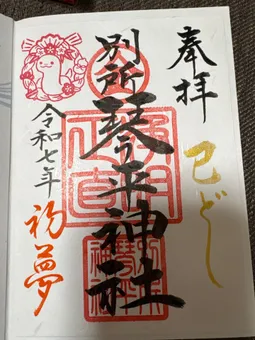 奉拝
巳どし
別所琴平神社
令和七年
初夢